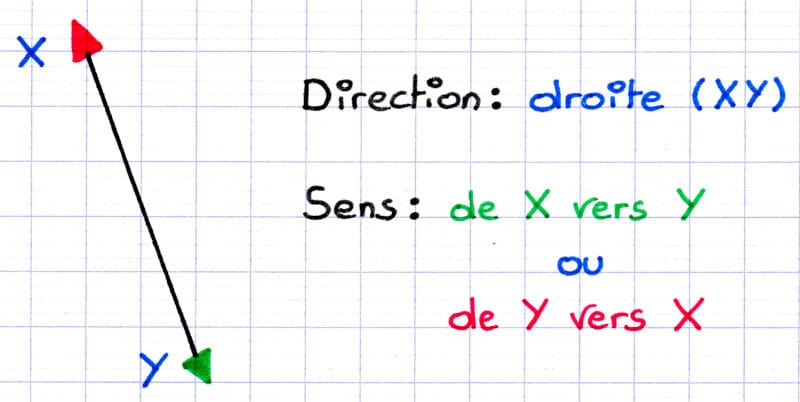 X
Direction: droite (XY)
Sens: de X vers Y
ou
de Y vers X
Y